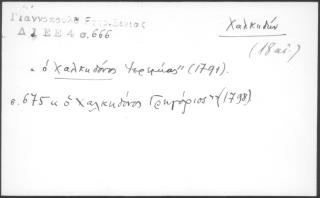 Γιαννοπούλου
Δ Ι Ε Ε 4 σ.666
Χαλκηδών
(18 αἰ.)
"ὁ Χαλκηδόνος Ἱερεμίας" (1791).
σ.675 κ ὁ Χαλκηδόνος Γρηγόριος" (1798).